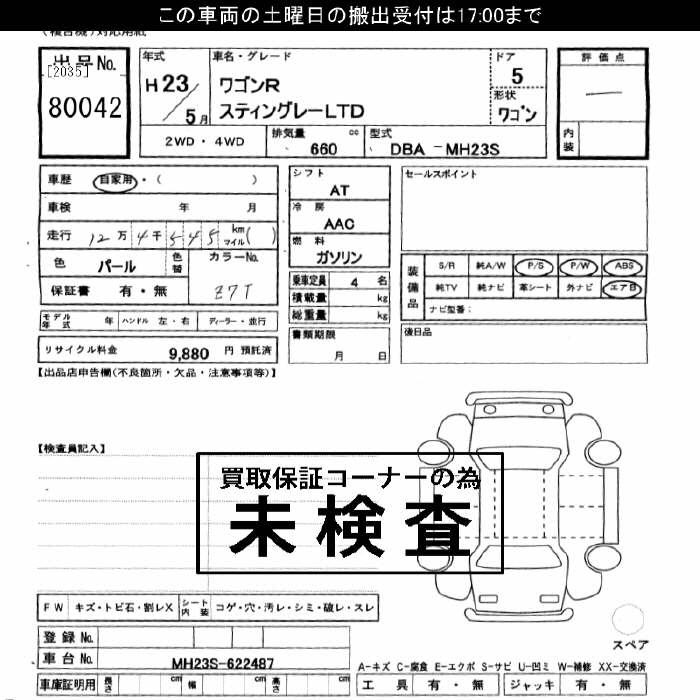 この車両の土曜日の搬出受付は17:00まで
出品No.
[2035]
80042
年式
H 23
5月
車名・グレード
ワゴンR
スティングレーLTD
ドア
5
形状
ワゴン
評価点
内装
2WD・4WD
排気量 660 cc
型式 DBA -MH23S
車歴 自家用・( )
車検 年 月
走行 12万4千545 km マイル( )
色 パール 色替 カラーNo.
Z7T
保証書 有・無
シフト
AT
冷房
AAC
燃料
ガソリン
乗車定員 4 名
積載量 kg
総重量 kg
書類期限
月 日
セールスポイント
装備品
S/R 純A/W P/S P/W ABS
純TV 純ナビ 革シート 外ナビ エアB
ナビ型番:
後日品
モデル年式 年 ハンドル 左・右 ディーラー・並行
リサイクル料金 9,880 円 預託済
【出品店申告欄(不良箇所・欠品・注意事項等)】
【検査員記入】
買取保証コーナーの為
未検査
FW キズ・トビ石・割レX シート内装 コゲ・穴・汚レ・シミ・破レ・スレ
スペア
登録No.
車台No. MH23S-622487
A-キズ C-腐食 E-エクボ S-サビ U-凹ミ W-補修 XX-交換済
車庫証明用 長さ cm 幅 cm 高さ cm
工具 有・無 ジャッキ 有・無